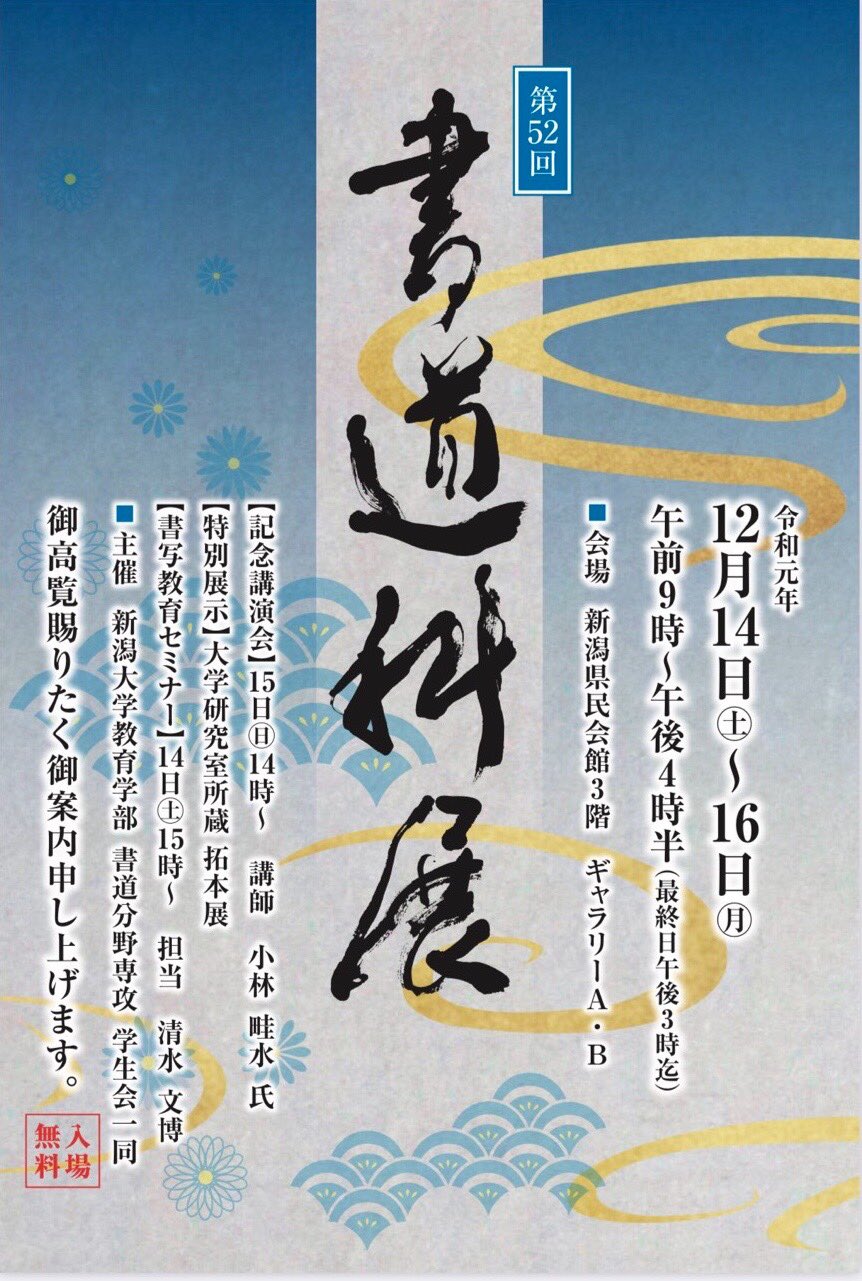 第52回
書道科展
令和元年
12月14日㊏〜16日㊊
午前9時〜午後4時半(最終日午後3時迄)
■会場 新潟県民会館3階 ギャラリーA・B
【記念講演会】15日㊐14時〜 講師 小林 畦水 氏
【特別展示】大学研究室所蔵 拓本展
【書写教育セミナー】14日㊏15時〜 担当 清水 文博
■主催 新潟大学教育学部 書道分野専攻 学生会一同
御高覧賜りたく御案内申し上げます。
入場
無料